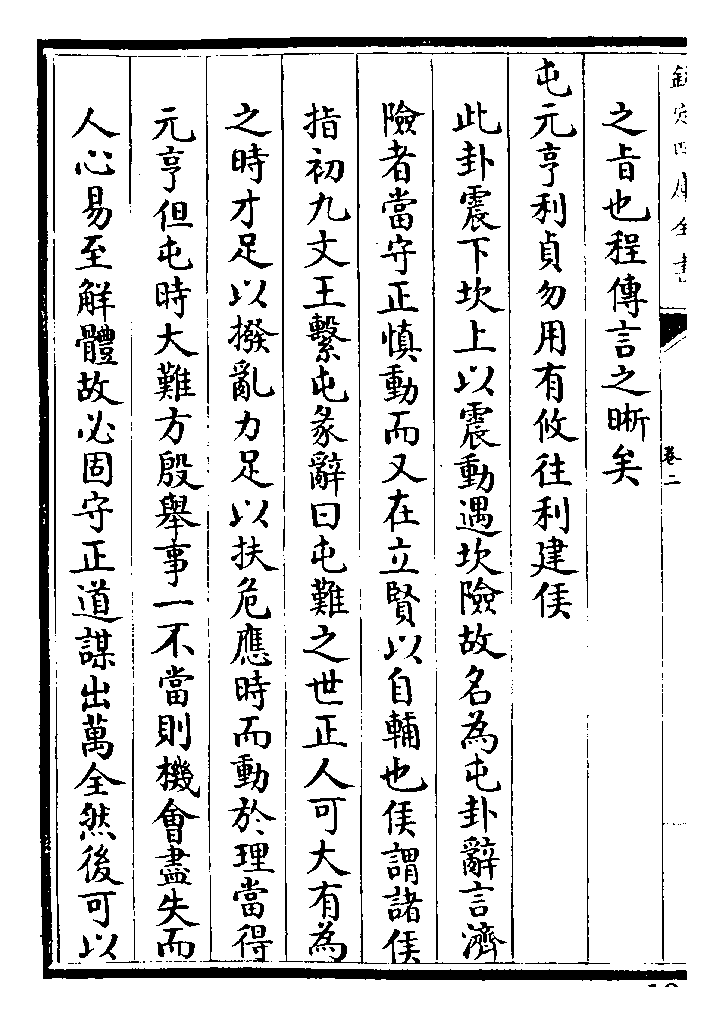 欽定四庫全書
卷二
之旨也程傳言之晰矣
屯元亨利貞勿用有攸往利建侯
此卦震下坎上以震動遇坎險故名為屯卦辭言濟
險者當守正慎動而又在立賢以自輔也侯謂諸侯
指初九文王繫屯彖辭曰屯難之世正人可大有為
之時才足以撥亂力足以扶危應時而動於理當得
元亨但屯時大難方殷舉事一不當則機會盡失而
人心易至解體故必固守正道謀出萬全然後可以